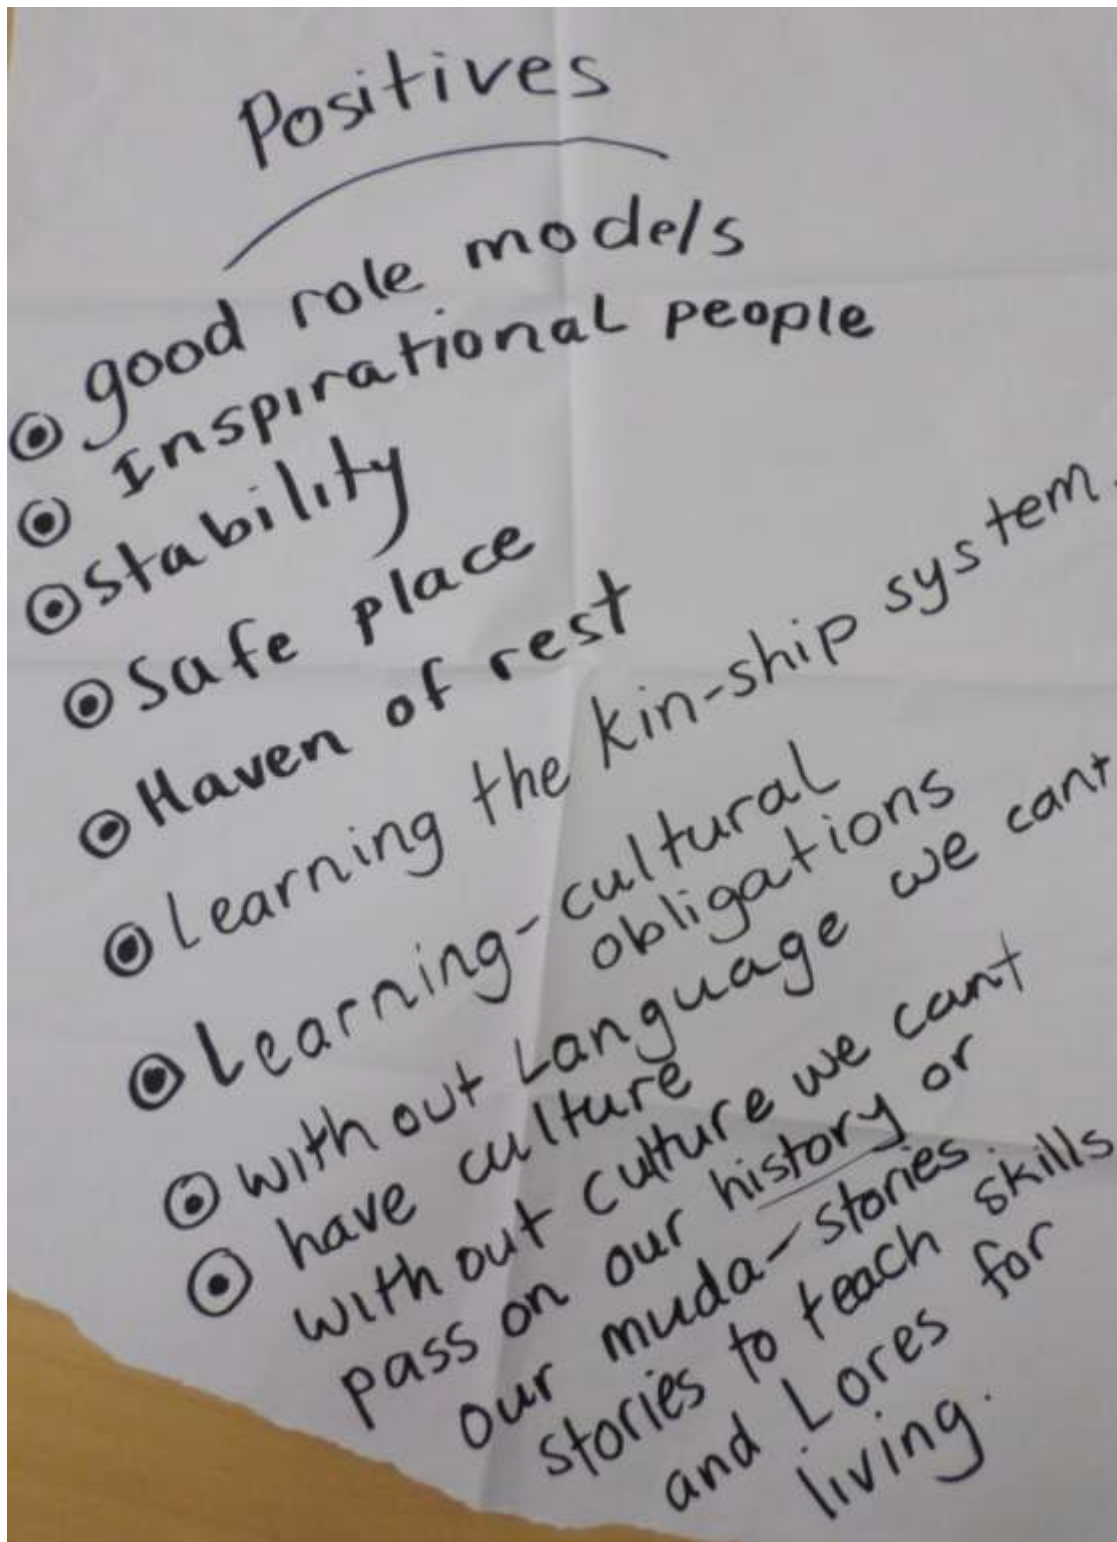 Positives
⦿ good role models
⦿ Inspirational people
⦿ Stability
⦿ Safe place
⦿ Haven of rest
⦿ Learning the kin-ship system.
⦿ Learning - cultural
obligations
⦿ with out Language we cant
⦿ have culture
with out culture we cant
pass on our history or
our muda - stories.
stories to teach skills
and Lores for
living.